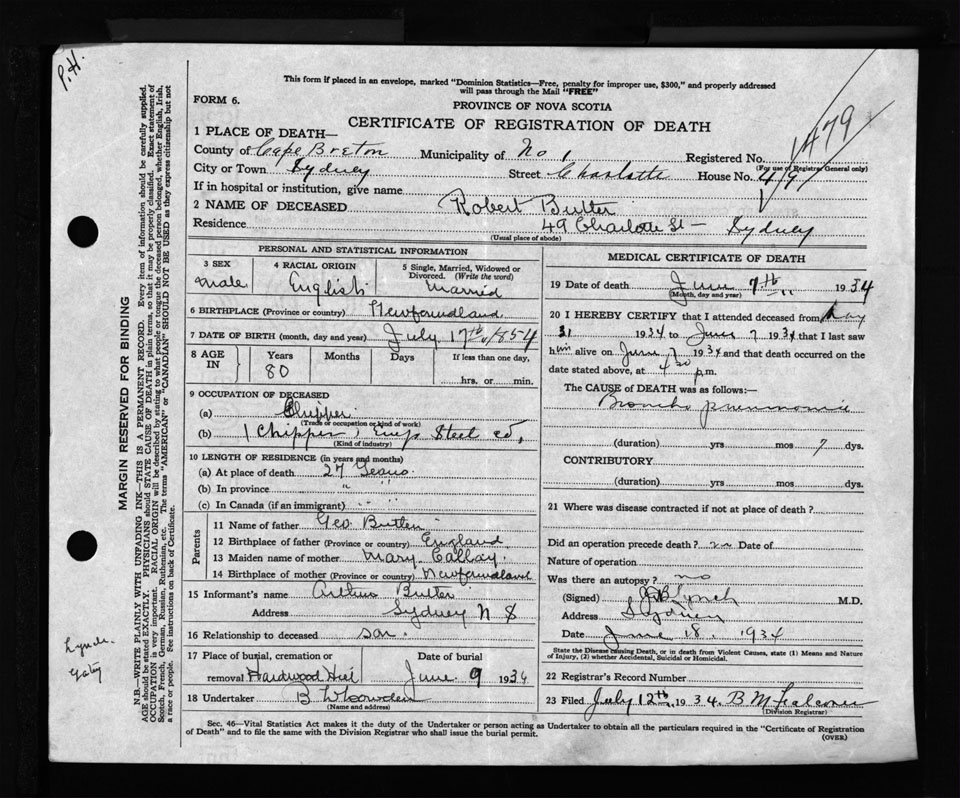 P.H.
This form if placed in an envelope, marked "Dominion Statistics—Free, penalty for improper use, $300," and properly addressed
will pass through the Mail "FREE"
FORM 6.
PROVINCE OF NOVA SCOTIA
CERTIFICATE OF REGISTRATION OF DEATH
1479
1 PLACE OF DEATH—
County of Cape Breton Municipality of No 1 Registered No.
(For use of Registrar General only)
City or Town Sydney Street Charlotte House No. 49
If in hospital or institution, give name
2 NAME OF DECEASED Robert Butler
Residence 49 Charlotte St — Sydney
(Usual place of abode)
PERSONAL AND STATISTICAL INFORMATION
3 SEX 4 RACIAL ORIGIN 5 Single, Married, Widowed or Divorced. (Write the word)
male English married
6 BIRTHPLACE (Province or country) Newfoundland
7 DATE OF BIRTH (month, day and year) July 17th 1854
8 AGE IN Years Months Days If less than one day,
80 hrs. or min.
9 OCCUPATION OF DECEASED
(a) Chipper
(Trade or occupation or kind of work)
(b) (Chipper) Steel Co,
(Kind of industry)
10 LENGTH OF RESIDENCE (in years and months)
(a) At place of death 27 Years
(b) In province "
(c) In Canada (if an immigrant) " "
Parents
11 Name of father Geo Butler
12 Birthplace of father (Province or country) England
13 Maiden name of mother Mary
14 Birthplace of mother (Province or country) Newfoundland
15 Informant's name Arthur Butler
Address Sydney N S
16 Relationship to deceased son
17 Place of burial, cremation or removal Hardwood Hill
Date of burial June 9 1934
18 Undertaker B
(Name and address)
MEDICAL CERTIFICATE OF DEATH
19 Date of death June 7th 1934
(Month, day and year)
20 I HEREBY CERTIFY that I attended deceased from May
31 1934 to June 7 1934 that I last saw
him alive on June 7 1934 and that death occurred on the
date stated above, at 4 30 p.m.
The CAUSE of DEATH was as follows:—
Broncho pneumonia
(duration) yrs mos 7 dys.
CONTRIBUTORY
(duration) yrs mos dys.
21 Where was disease contracted if not at place of death?
Did an operation precede death? no Date of
Nature of operation
Was there an autopsy? no
(Signed) Lynch M.D.
Address Sydney
Date June 18. 1934
State the Disease causing Death, or in death from Violent Causes, state (1) Means and Nature of Injury, (2) whether Accidental, Suicidal or Homicidal.
22 Registrar's Record Number
23 Filed July 12th 1934. B M Falconer
(Division Registrar)
Sec. 46—Vital Statistics Act makes it the duty of the Undertaker or person acting as Undertaker to obtain all the particulars required in the "Certificate of Registration
of Death" and to file the same with the Division Registrar who shall issue the burial permit.
(OVER)
MARGIN RESERVED FOR BINDING
N.B.—WRITE PLAINLY WITH UNFADING INK—THIS IS A PERMANENT RECORD. Every item of information should be carefully supplied.
AGE should be stated EXACTLY. PHYSICIANS should STATE CAUSE OF DEATH in plain terms, so that it may be properly classified. Exact statement of
OCCUPATION is very important. RACIAL ORIGIN will be described by stating to what people or tongue the deceased person belonged, whether English, Irish,
Scotch, French, German, Russian, Ruthenian, etc. The terms "AMERICAN" or "CANADIAN" SHOULD NOT BE USED as they express citizenship but not
a race or people. See instructions on back of Certificate.